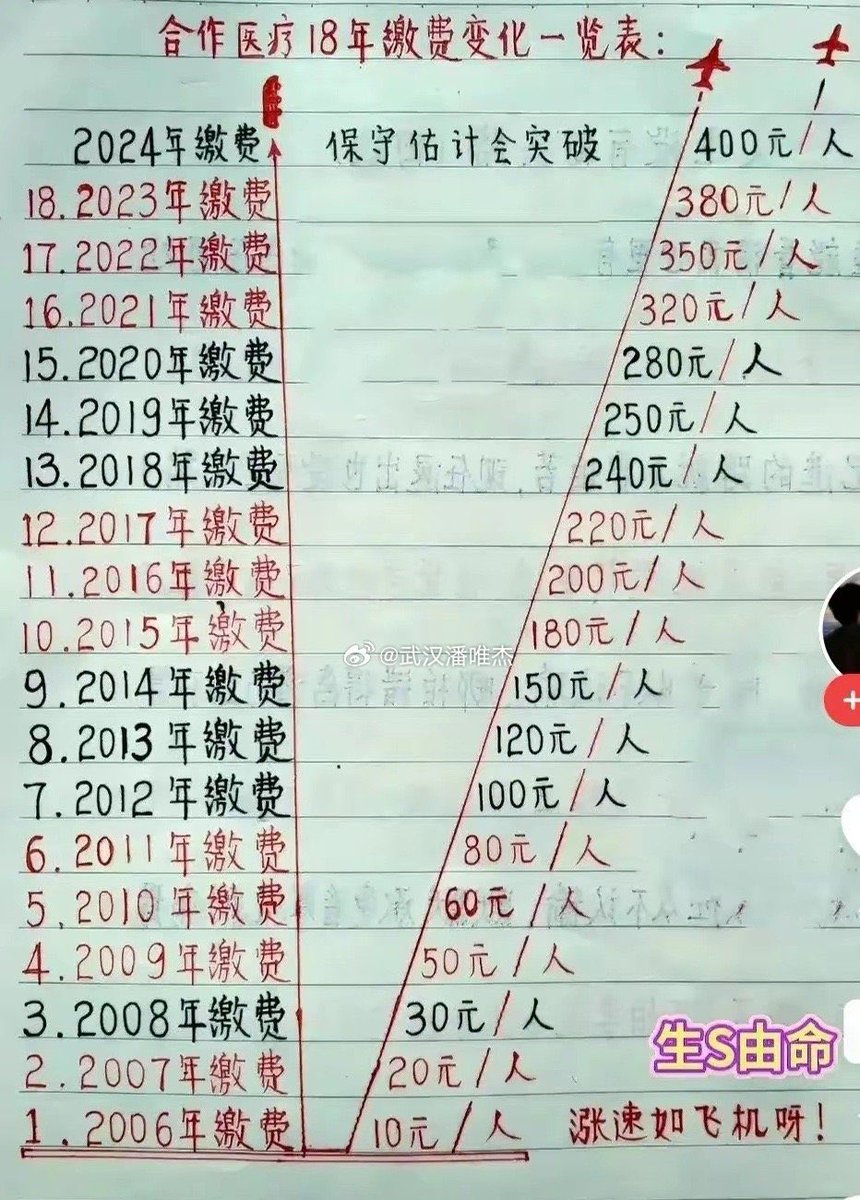 合作医疗18年缴费变化一览表:
2024年缴费 保守估计会突破 400元/人
18.2023年缴费 380元/人
17.2022年缴费 350元/人
16.2021年缴费 320元/人
15.2020年缴费 280元/人
14.2019年缴费 250元/人
13.2018年缴费 240元/人
12.2017年缴费 220元/人
11.2016年缴费 200元/人
10.2015年缴费 180元/人
@武汉潘唯杰
9.2014年缴费 150元/人
8.2013年缴费 120元/人
7.2012年缴费 100元/人
6.2011年缴费 80元/人
5.2010年缴费 60元/人
4.2009年缴费 50元/人
3.2008年缴费 30元/人
生S由命
2.2007年缴费 20元/人
1.2006年缴费 10元/人 涨速如飞机呀!